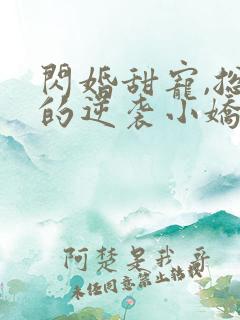 閃婚甜寵,總
的逆袭小嬌
阿楚是我哥
未经同意禁止转载